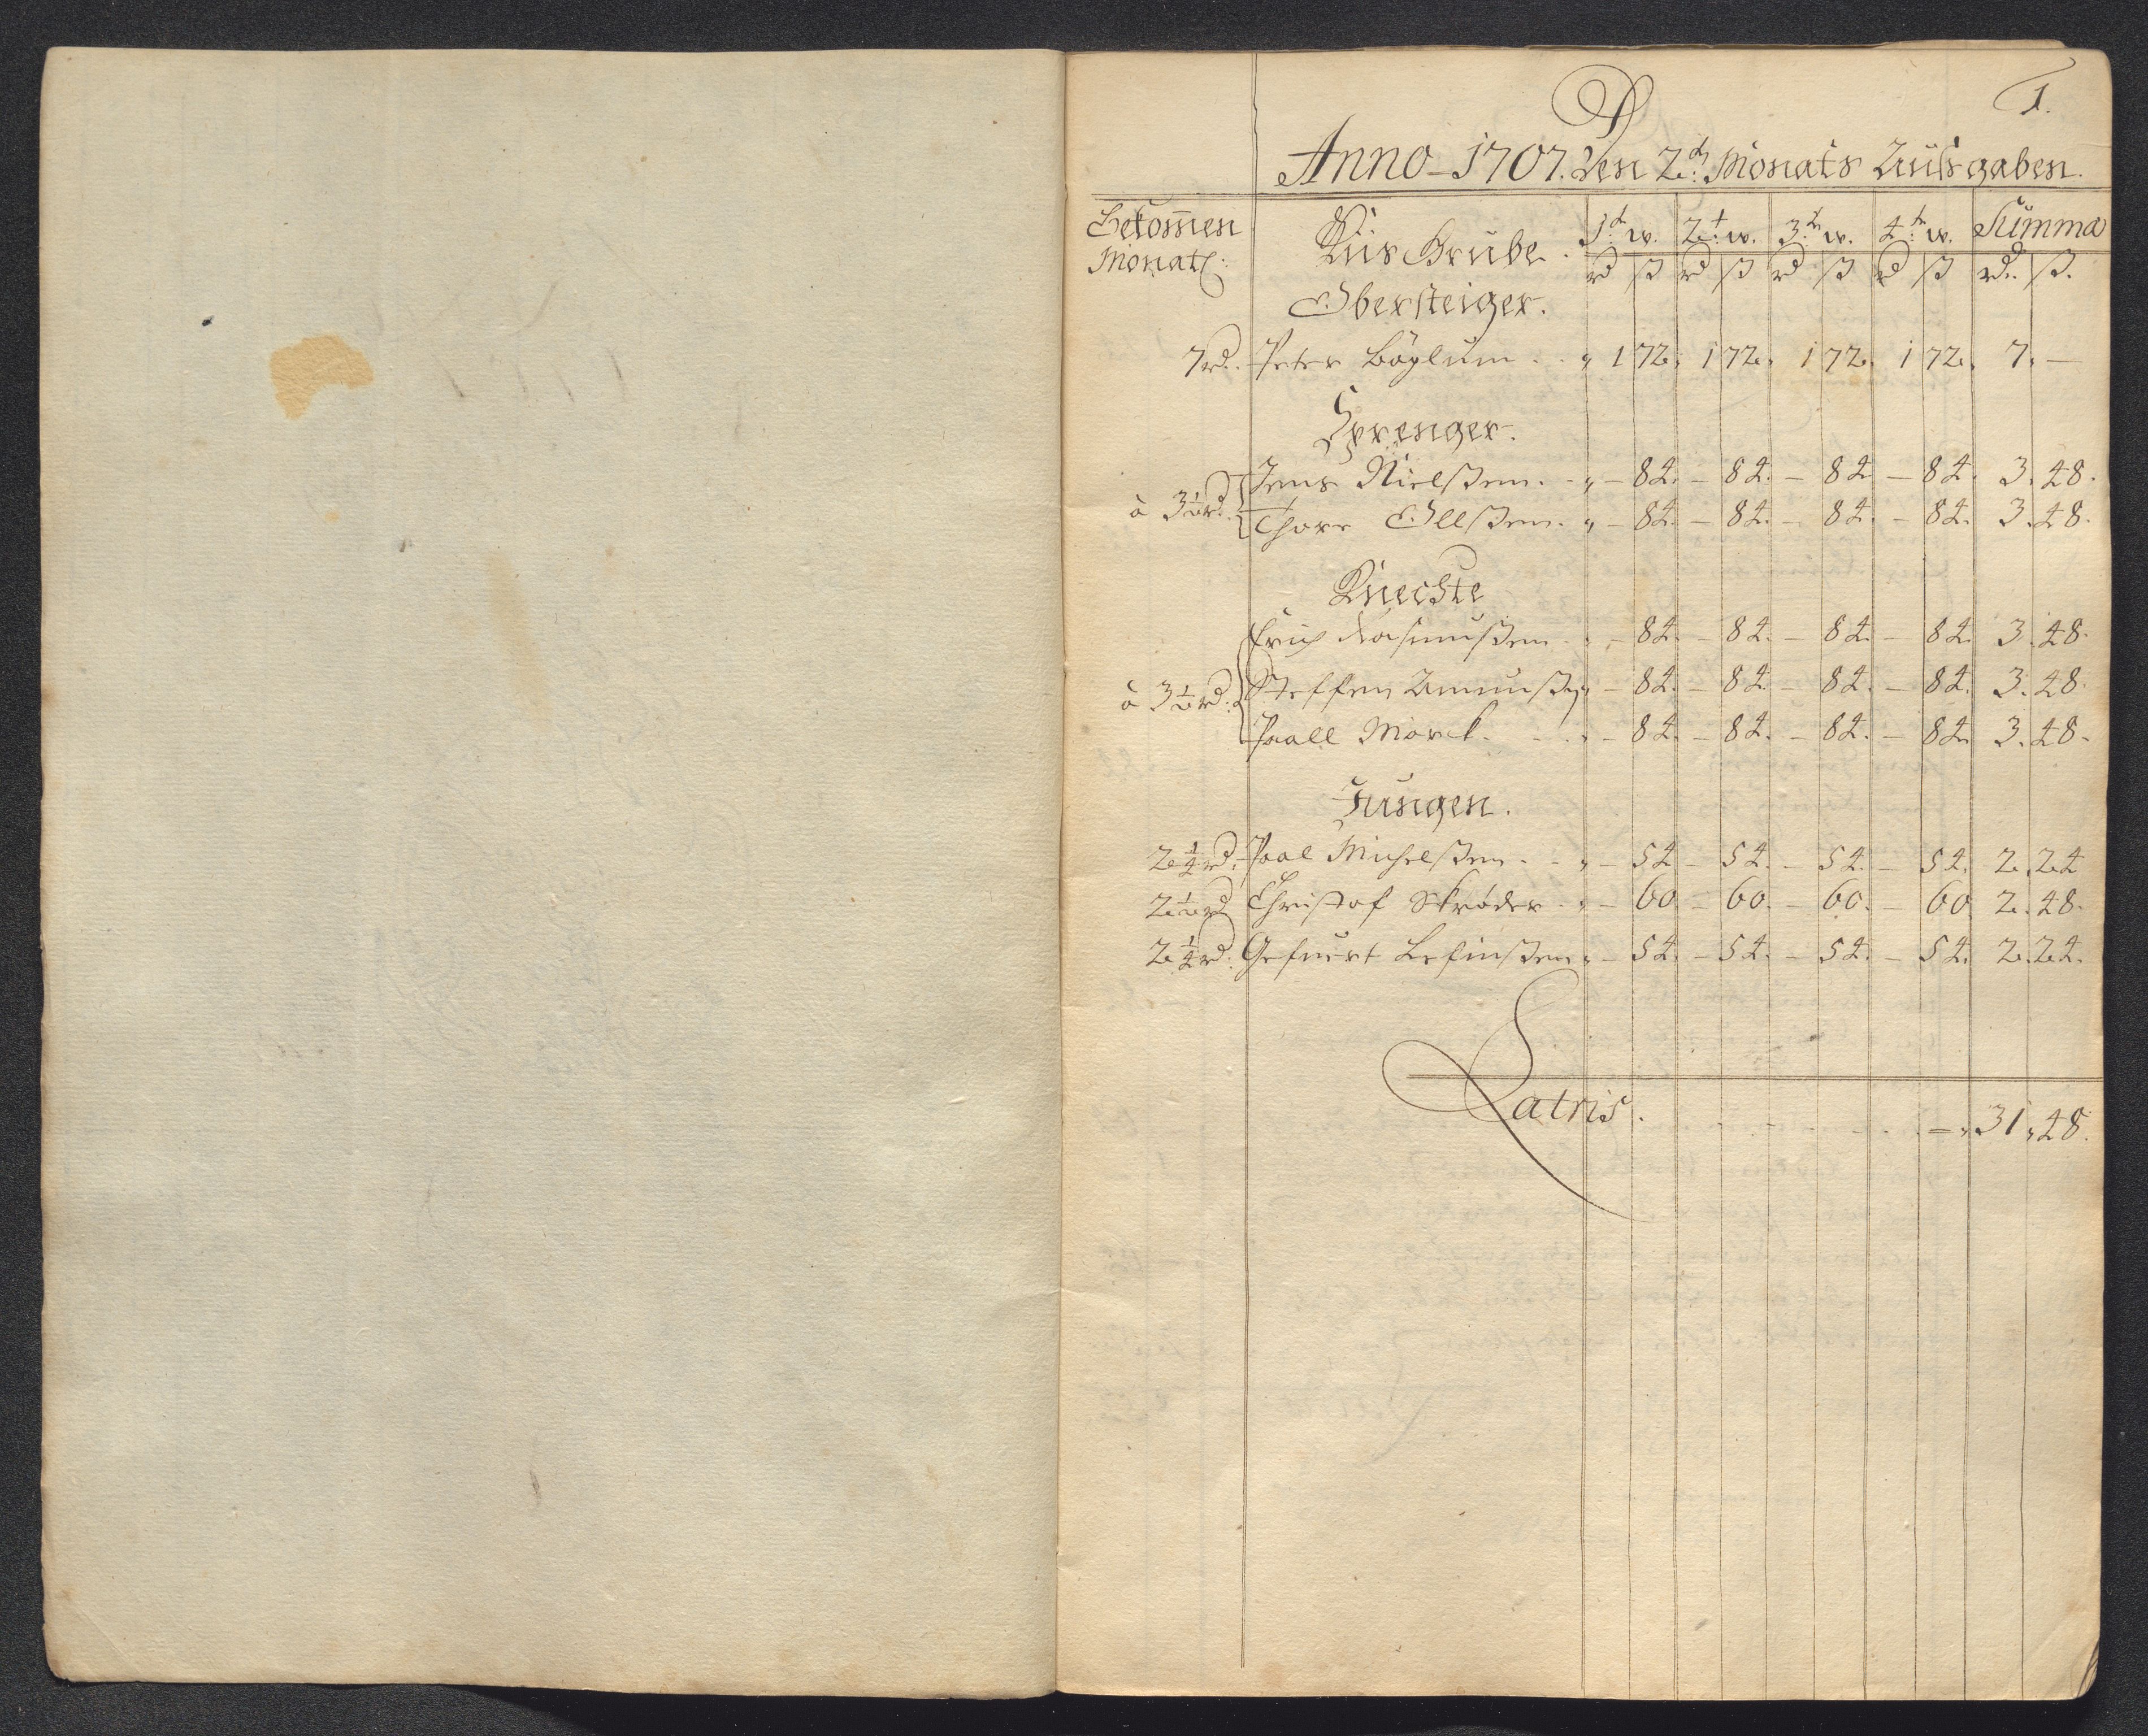 1.
Anno 1707. Den 2t: Monats Auß gaben.
Bekom̄en Monatl: Kiis Grube. 1t w. 2t: w. 3t: w. 4t: w. Summa
rd ß rd ß rd ß rd ß rd. ß.
Obersteiger.
7 rd. Peter Böylum . . „ 1 72. 1 72. 1 72. 1 72. 7. —
Sprenger.
à 3½ rd. Jens Nielßen. - „ – 84. – 84. – 84 – 84. 3. 48.
Thore Ollßen. „ – 84. – 84. – 84. – 84. 3. 48.
Knechte
Erich Rasmußen - 84. – 84. – 84. – 84. 3. 48.
à 3½ rd: Steffen Amunßen – 84. – 84. – 84. – 84. 3. 48.
Paall Morck. - . . – 84. – 84. – 84. – 84. 3. 48.
Jungen.
2¼ rd. Paal Michelßen - - „ – 54 – 54. – 54. – 54. 2. 24
2½ rd Christof Skrøder . „ – 60. – 60. – 60. – 60 2. 48.
2¼ rd: Gefuert Lefinßen „ – 54. – 54. – 54. – 54. 2. 24.
Latris. . . . . . . . . — „ 31 „ 48.